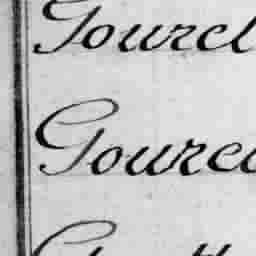 Gourcl
Gource